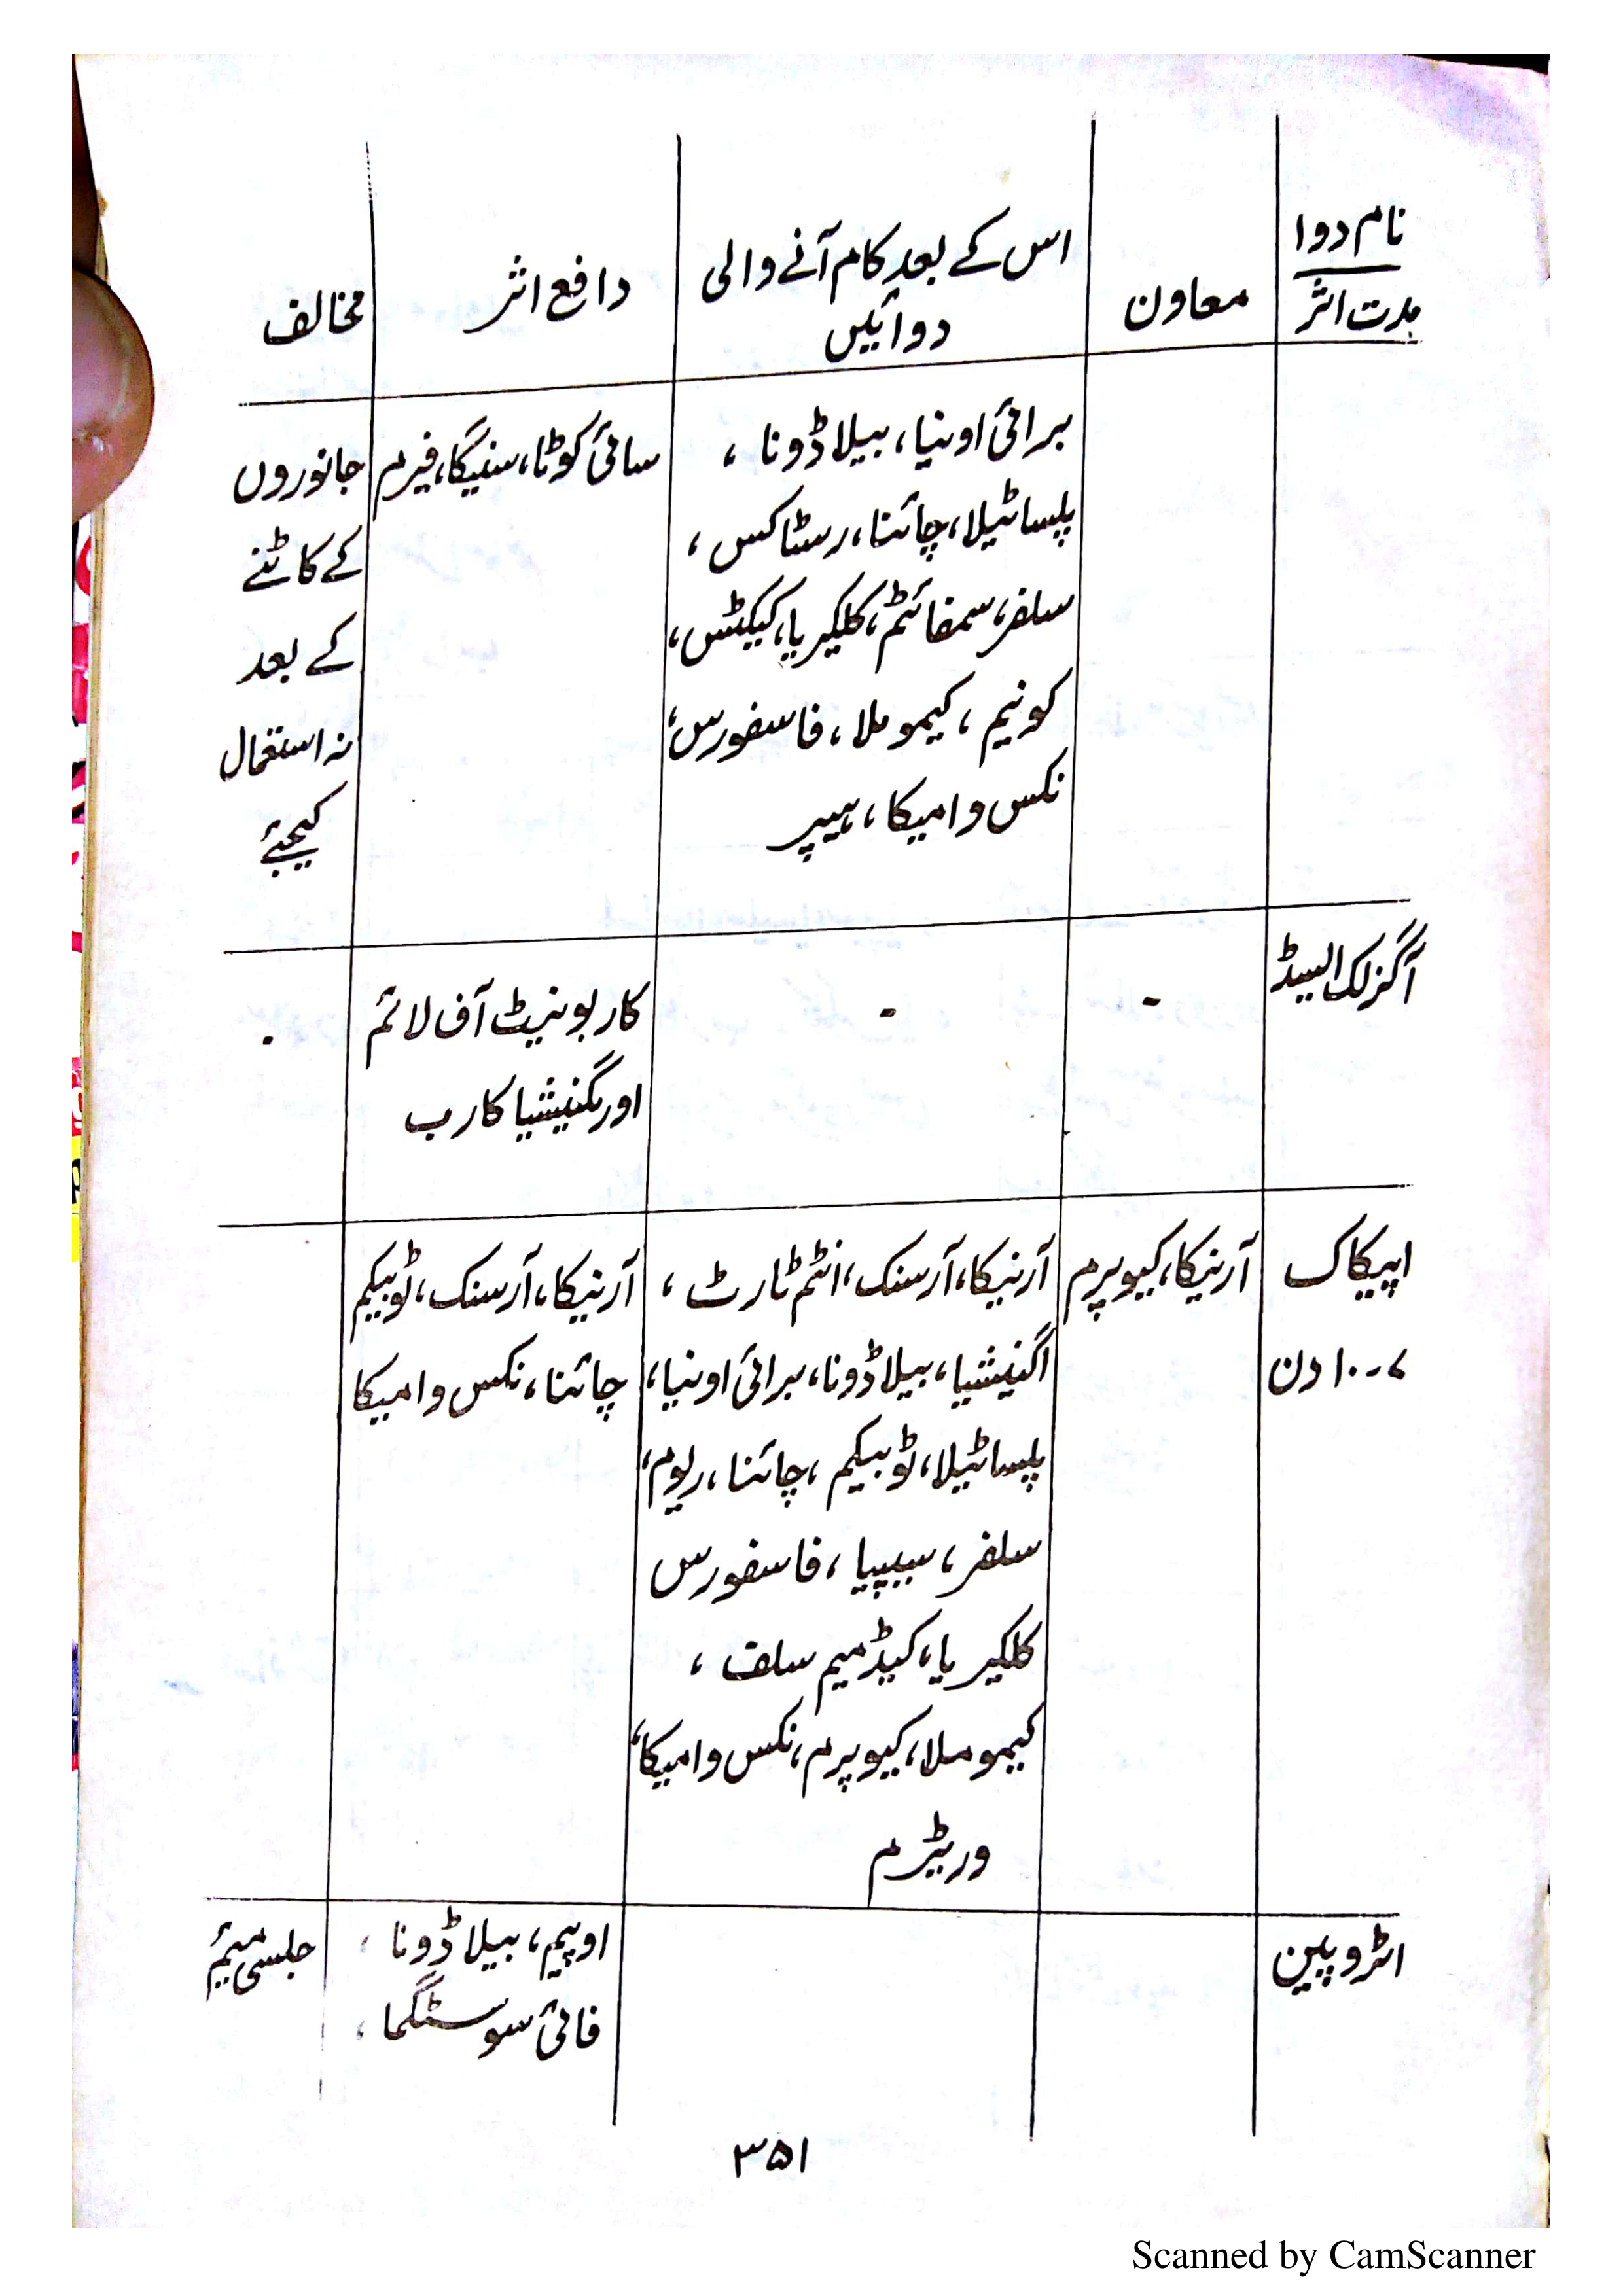 نام دوا
مدت اثر
معاون
اس کے بعد کام آنے والی
دوائیں
دافع اثر
مخالف
برائی اونیا، بیلا ڈونا،
پلساٹیلا، چائنا، رسٹاکس،
سلفر، سمفائٹم، کلکیریا، کیکٹس،
کونیم، کیموملا، فاسفورس،
نکس وامیکا، ہیپر
سائی کوٹا، سنیگا، فیرم
جانوروں
کے کاٹنے
کے بعد
نہ استعمال
کیجئے
آگزلک ایسیڈ
-
-
کاربونیٹ آف لائم
اور مگنیشیا کارب
-
اپیکاک
۷-۱۰ دن
آرنیکا، کیوپرم
آرنیکا، آرسنک، انٹم ٹارٹ،
اگنیشیا، بیلا ڈونا، برائی اونیا،
پلساٹیلا، ٹوبیکم، چائنا، ریوم،
سلفر، سیپیا، فاسفورس
کلکیریا، کیڈمیم سلف،
کیموملا، کیوپرم، نکس وامیکا،
وریٹرم
آرنیکا، آرسنک، ٹوبیکم
چائنا، نکس وامیکا
اٹروپین
اوپیم، بیلا ڈونا،
فائی سوسٹگما،
جلسی میئم
۳۵۱
Scanned by CamScanner